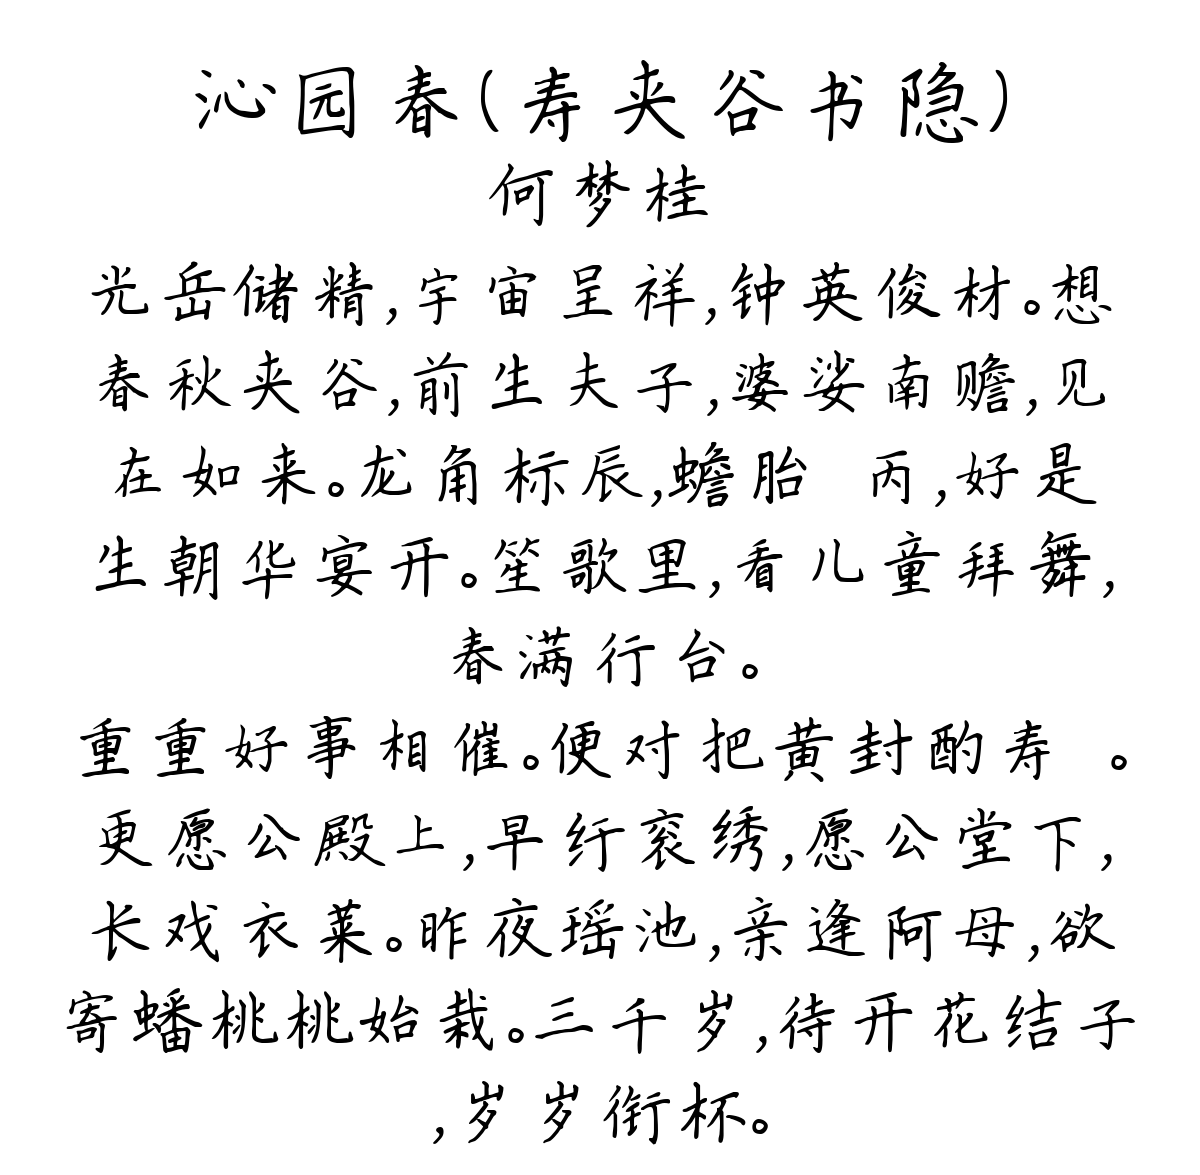 沁园春(寿夹谷书隐)
何梦桂
光岳储精,宇宙呈祥,钟英俊材。想
春秋夹谷,前生夫子,婆娑南赡,见
在如来。龙角标辰,蟾胎 丙,好是
生朝华宴开。笙歌里,看儿童拜舞,
春满行台。
重重好事相催。便对把黄封酌寿 。
更愿公殿上,早纡衮绣,愿公堂下,
长戏衣莱。昨夜瑶池,亲逢阿母,欲
寄蟠桃桃始栽。三千岁,待开花结子
,岁岁衔杯。